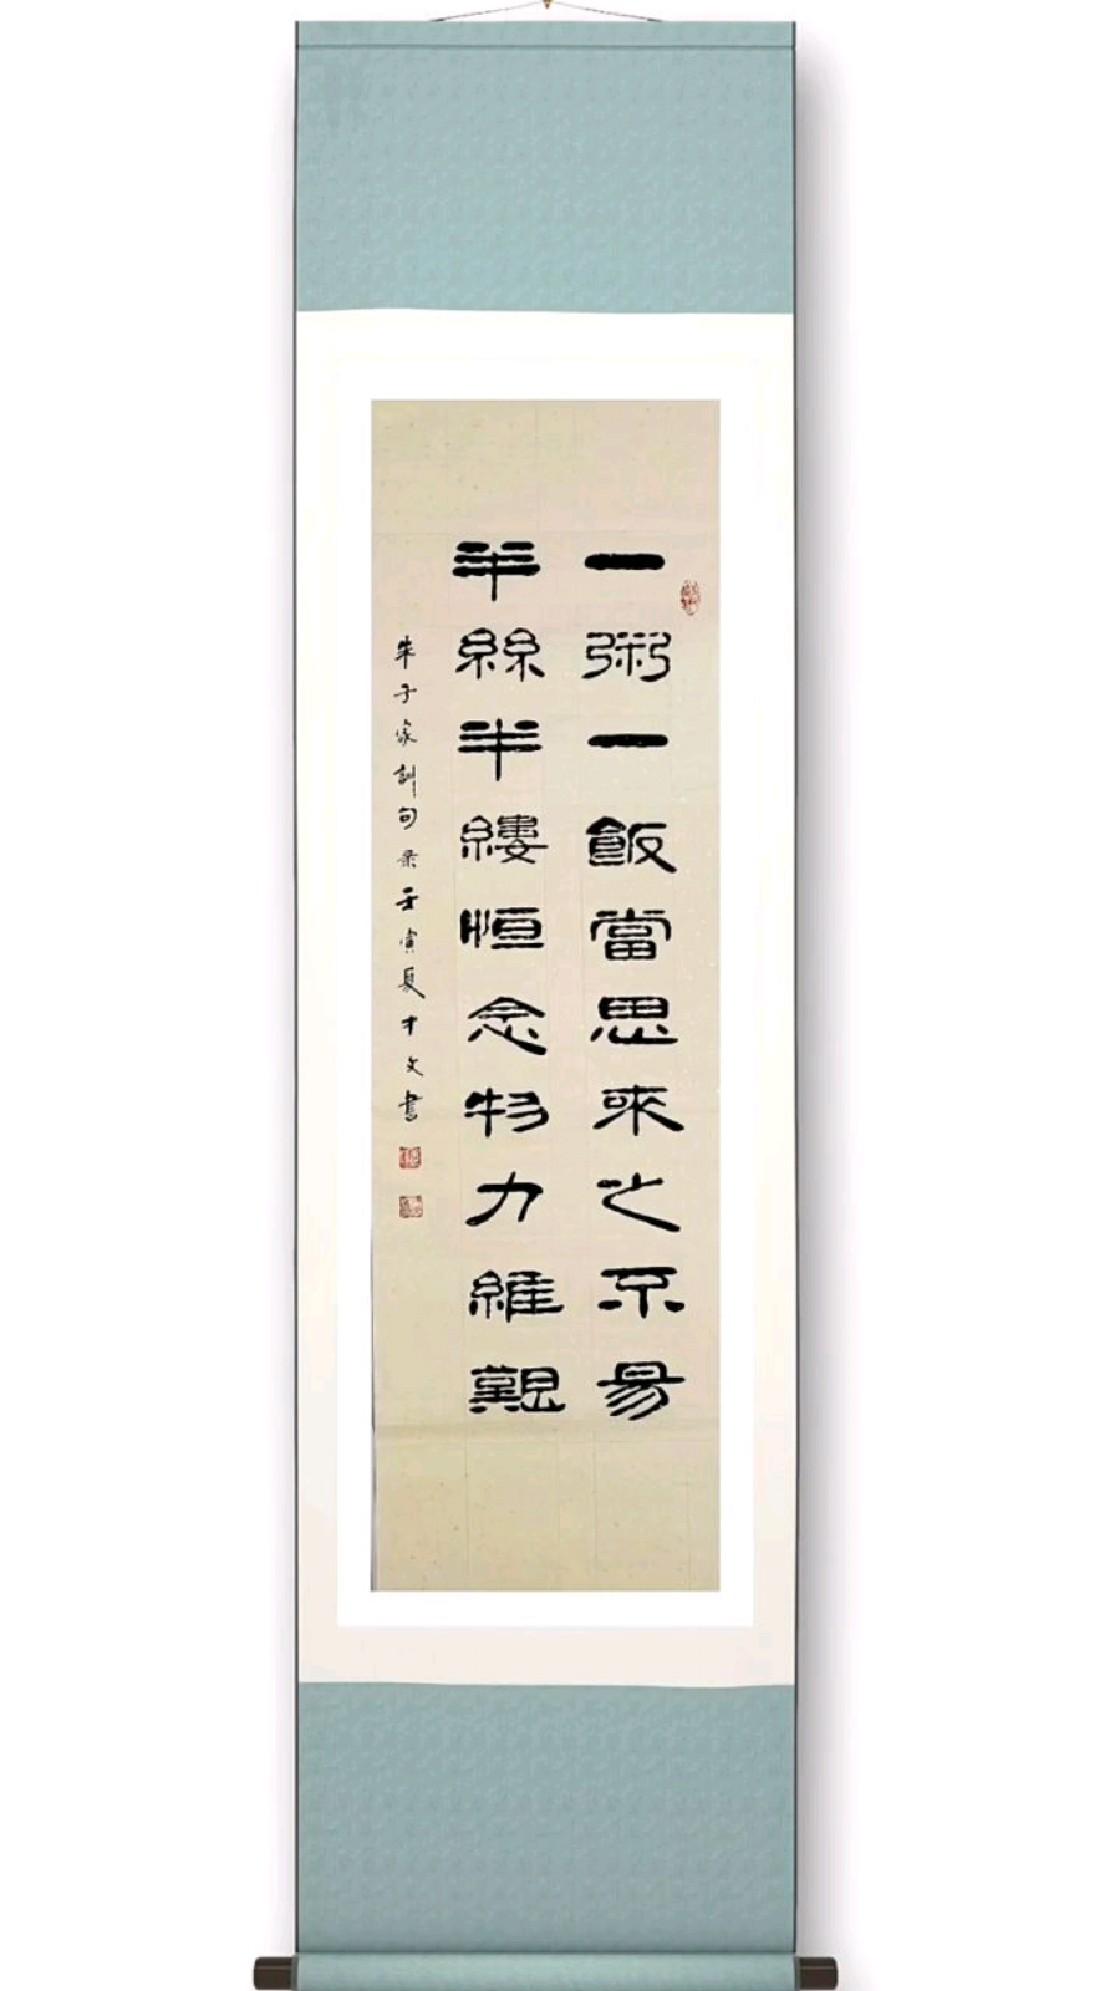 一粥一飯當思來之不易
半絲半縷恒念物力維艱
朱子家訓句錄壬寅夏才文書